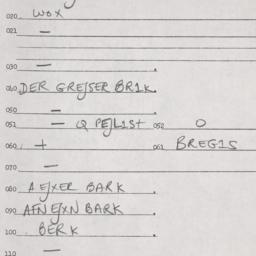 020 WOX
021 —
030 —
040 DER GREJSER BR1K.
050 —
051 — Q PEJL1ST 052 O
060 + 061 BREG1S
070 —
080 A EJXER BARK
090 AFNEJXN BARK
100 BERK
110 —